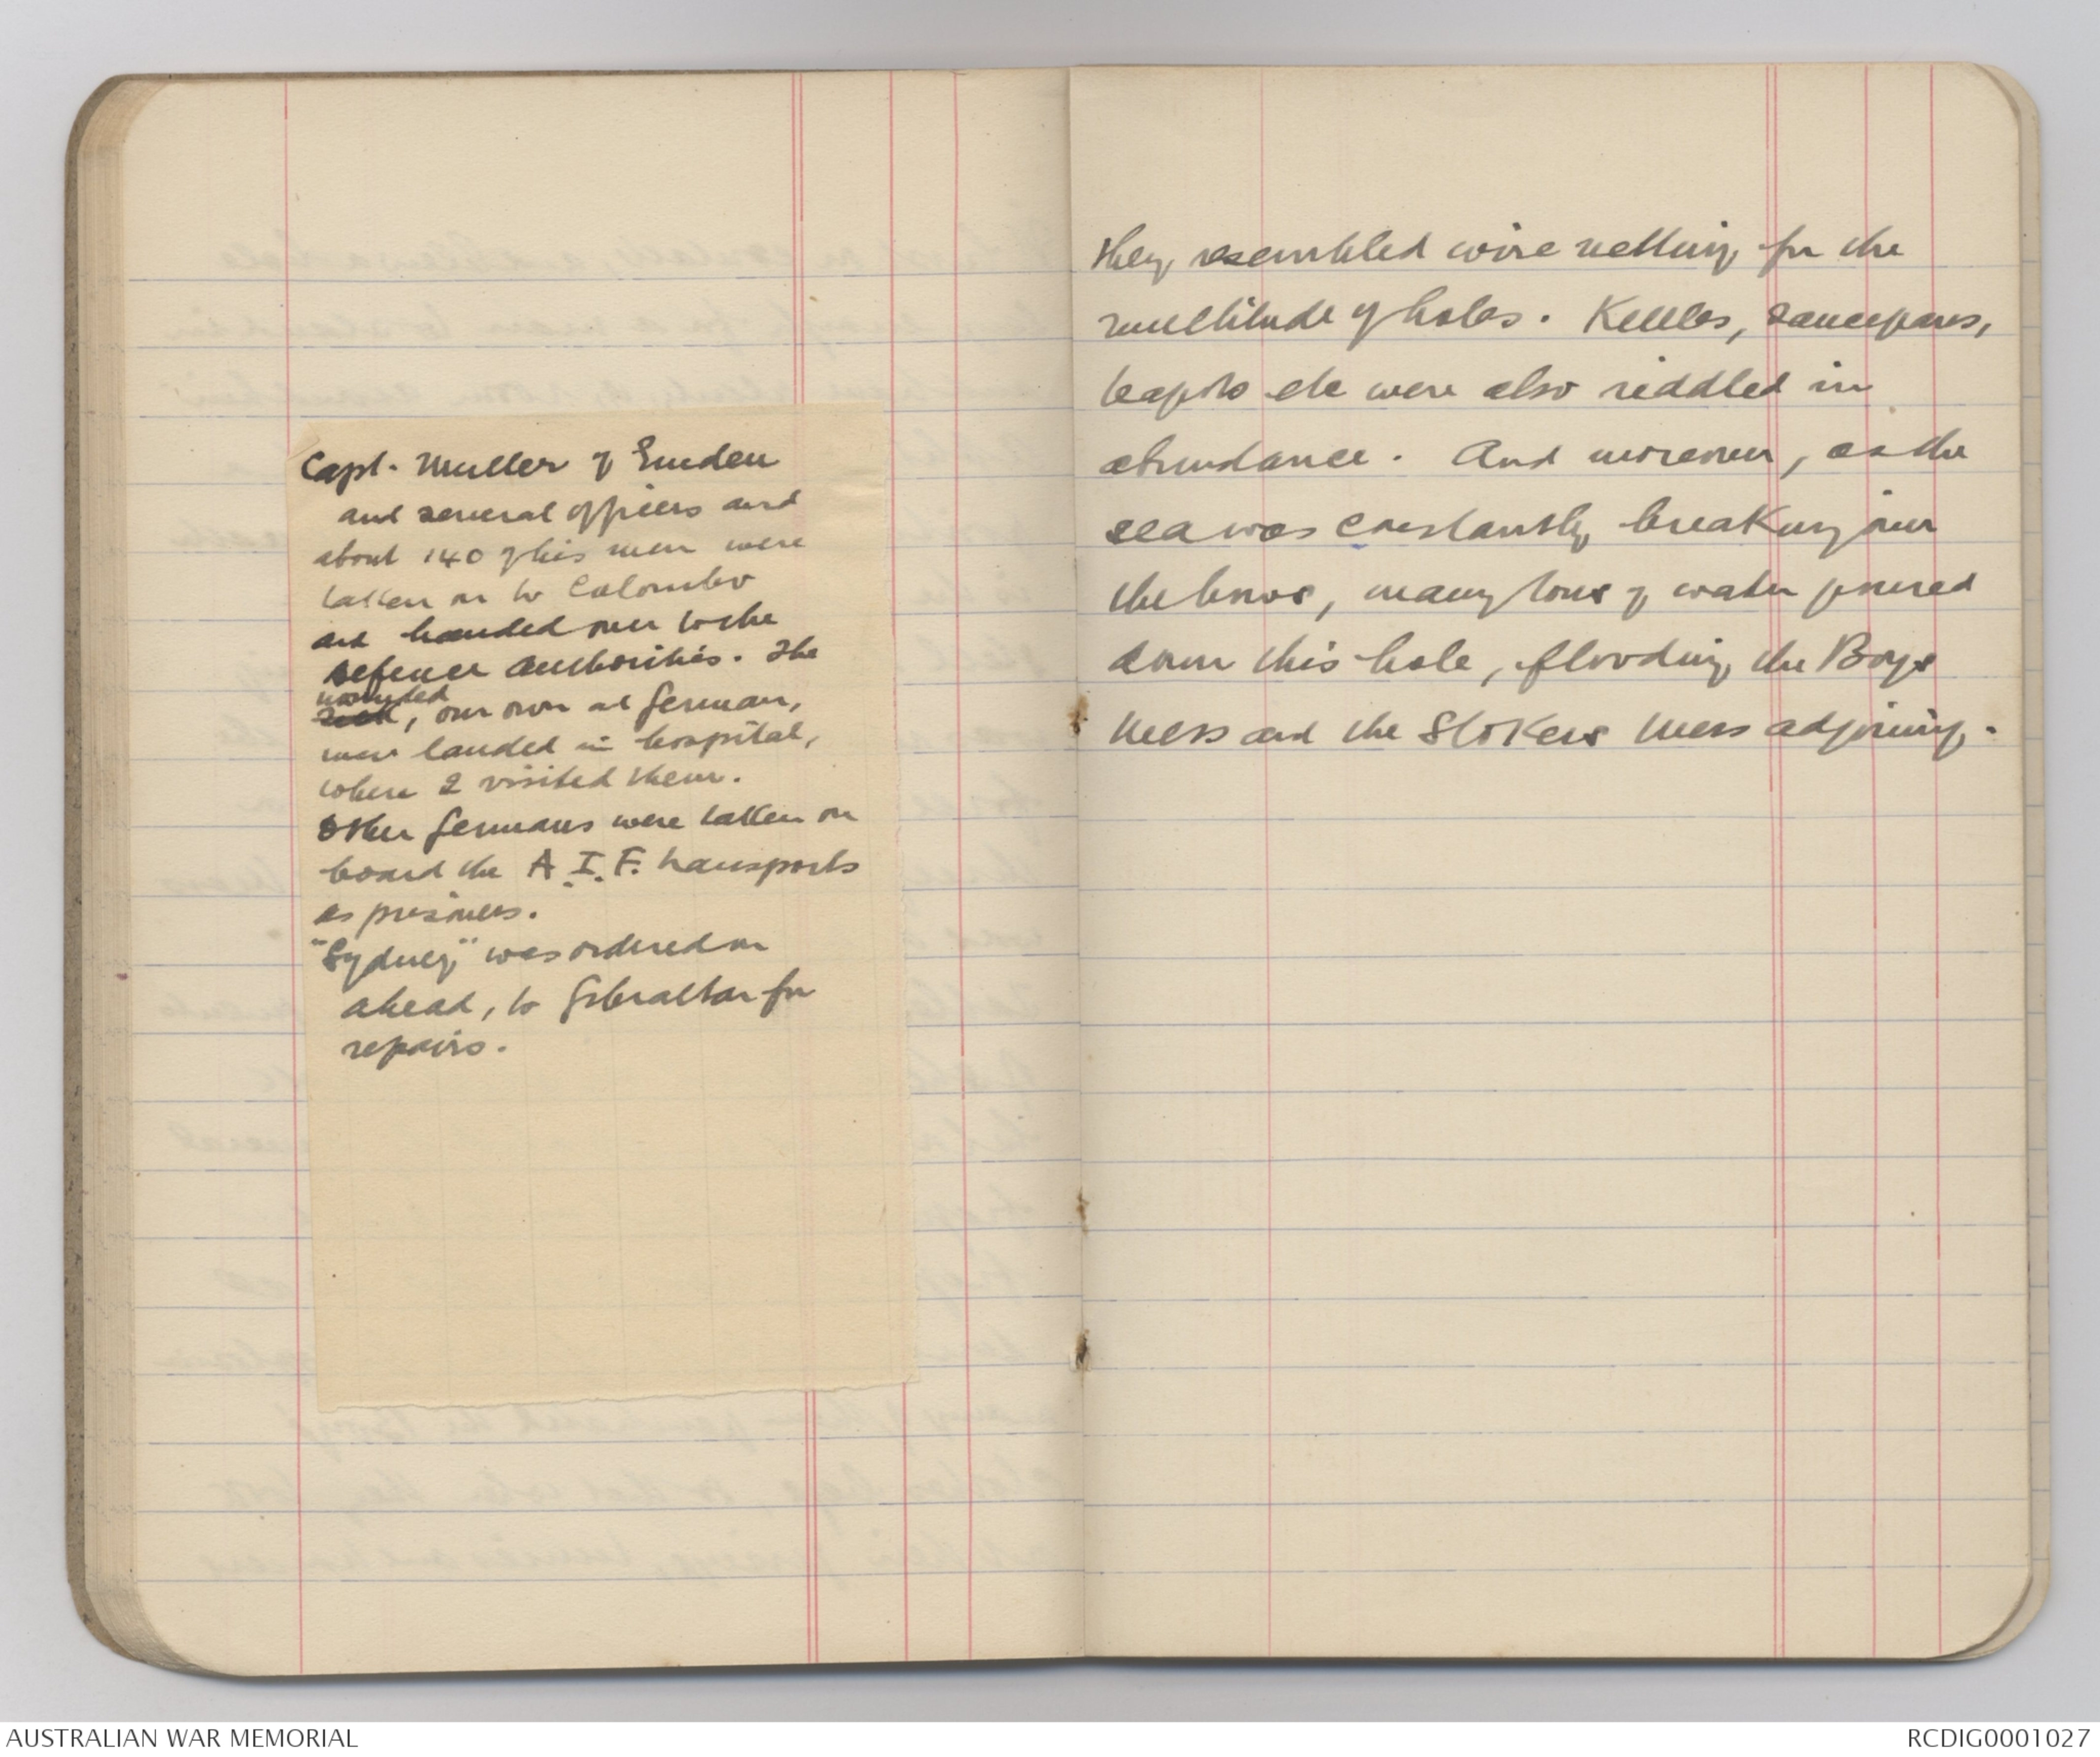 Capt. Muller of Emden
and several officers and
about 140 of his men were
taken on to Colombo
and handed over to the
Defence Authorities. The
wounded
sick, our own and German,
were landed in hospital,
where I visited them.
Other Germans were taken on
board the A.I.F. transports
as prisoners.
"Sydney" was ordered on
ahead, to Gibraltar for
repairs.
they resembled wire netting for the
multitude of holes. Kettles, saucepans,
teapots etc were also riddled in
abundance. And moreover, as the
sea was constantly breaking over
the bows, many tons of water poured
down this hole, flooding the Boys
Mess and the Stokers Mess adjoining.
AUSTRALIAN WAR MEMORIAL
RCDIG0001027